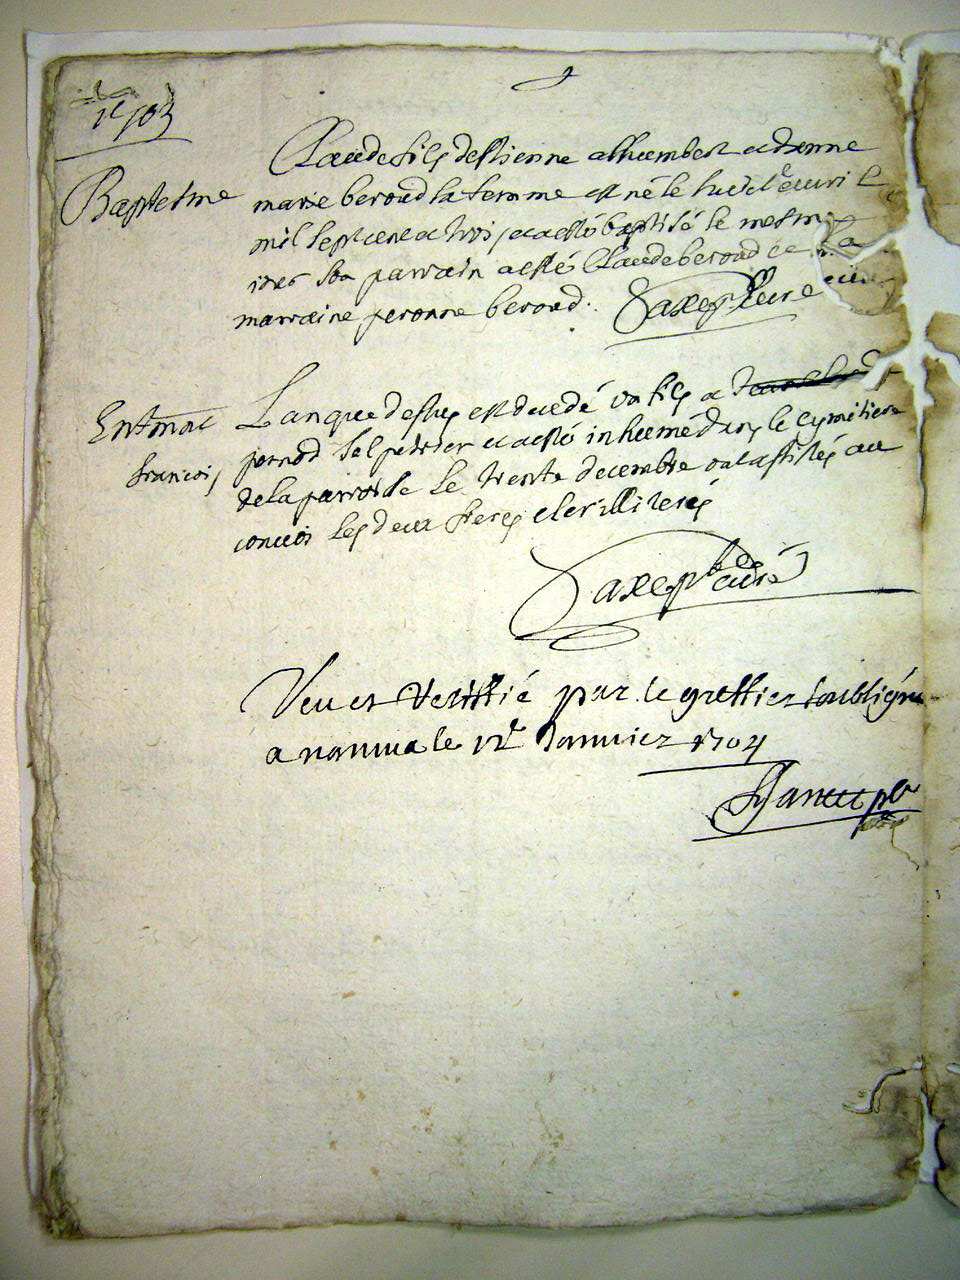 1703
Baptesme
Claude fils destienne alhumbert et danne
marie beroud sa femme est né le huict auril
mil sept cent et trois et a esté baptisé le mesm
iour son parrain a esté Claude beroud et sa
marraine peronne beroud. Saxe ptre curé
Enterrmt
francois
Lan que dessus est decedé un fils a
pernod selpetrier et a esté inhumé dans le cymetiere
de la parroisse le trente decembre ont assistés au
conuois les deux freres et les illiterés
Saxe ptre curé
Veu et Veriffié par le greffier soubsigné
a nantua le Janvier 1704